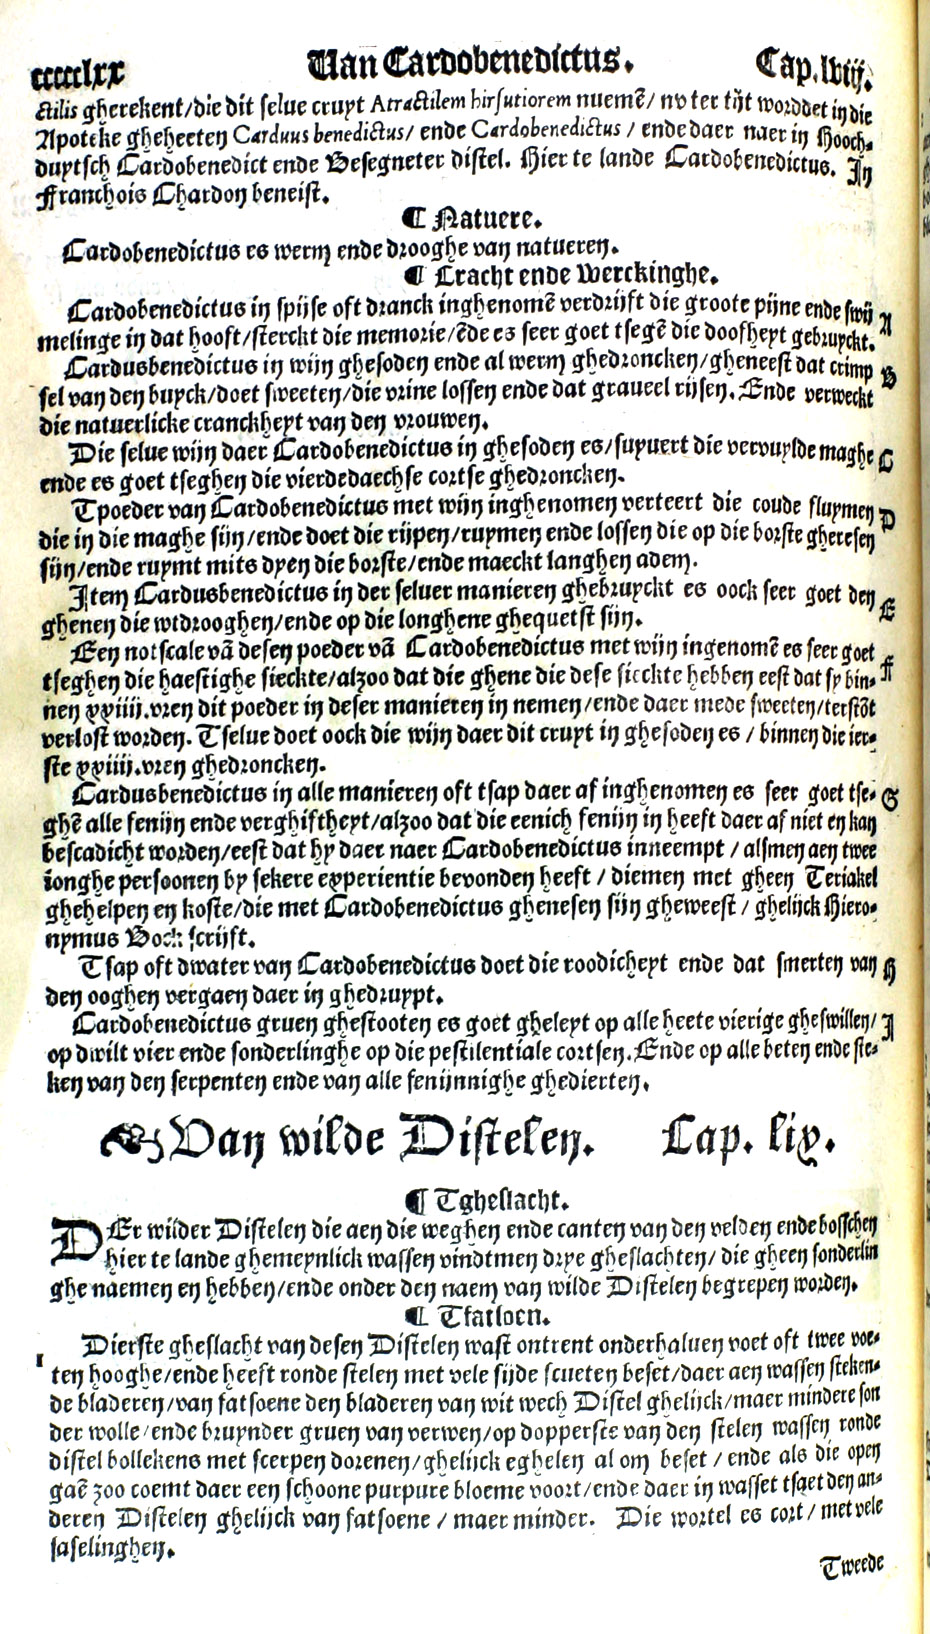 ccccclxx Van Cardobenedictus. Cap.lviij.
ctilis gherekent/die dit selue cruyt Atractilem hirsutiorem nuemē/ nv ter tijt worddet in die
Apoteke gheheeten Carduus benedictus/ ende Cardobenedictus / ende daer naer in Hooch-
duytsch Cardobenedict ende Besegneter distel. Hier te lande Cardobenedictus. In
Franchois Chardon beneist.
¶ Natuere.
Cardobenedictus es werm ende drooghe van natueren.
¶ Cracht ende Werckinghe.
Cardobenedictus in spijse oft dranck inghenomē verdrijft die groote pijne ende swij A
melinge in dat hooft/sterckt die memorie/ēde es seer goet tsegē die doofheyt gebruyckt.
Cardusbenedictus in wijn ghesoden ende al werm ghedroncken/gheneest dat crimp B
sel van den buyck/doet sweeten/die vrine lossen ende dat graueel rijsen. Ende verweckt
die natuerlicke cranckheyt van den vrouwen.
Die selue wijn daer Cardobenedictus in ghesoden es/suyuert die veruuylde maghe C
ende es goet tseghen die vierdedaechse cortse ghedroncken.
Tpoeder van Cardobenedictus met wijn inghenomen verteert die coude fluymen D
die in die maghe sijn/ende doet die rijpen/ruymen ende lossen die op die borste gheresen
sijn/ende ruymt mits dyen die borste/ende maeckt langhen adem.
Item Cardusbenedictus in der seluer manieren ghebruyckt es oock seer goet den E
ghenen die wtdrooghen/ende op die longhene ghequetst sijn.
Een notscale vā desen poeder vā Cardobenedictus met wijn ingenomē es seer goet F
tseghen die haestighe sieckte/alzoo dat die ghene die dese sieckte hebben eest dat sy bin-
nen xxiiij.vren dit poeder in deser manieren in nemen/ende daer mede sweeten/terstōt
verlost worden. Tselue doet oock die wijn daer dit cruyt in ghesoden es / binnen die ier-
ste xxiiij.vren ghedroncken.
Cardusbenedictus in alle manieren oft tsap daer af inghenomen es seer goet tse- G
ghē alle fenijn ende verghiftheyt/alzoo dat die eenich fenijn in heeft daer af niet en kan
bescadicht worden/eest dat hy daer naer Cardobenedictus inneempt / alsmen aen twee
ionghe persoonen by sekere experientie bevonden heeft / diemen met gheen Teriakel
ghehelpen en koste/die met Cardobenedictus ghenesen sijn gheweest / ghelijck Hiero-
nymus Bock scrijft.
Tsap oft dwater van Cardobenedictus doet die roodicheyt ende dat smerten van H
den ooghen vergaen daer in ghedruppt.
Cardobenedictus gruen ghestooten es goet gheleyt op alle heete vierige gheswillen/ I
op dwilt vier ende sonderlinghe op die pestilentiale cortsen. Ende op alle beten ende ste-
ken van den serpenten ende van alle fenijnnighe ghedierten.
Van wilde Distelen. Cap. lix.
¶ Tgheslacht.
DEr wilder Distelen die aen die weghen ende canten van den velden ende bosschen
hier te lande ghemeynlick wassen vindtmen drye gheslachten/ die gheen sonderlin
ghe naemen en hebben/ende onder den naem van wilde Distelen begrepen worden.
¶ Tfatsoen.
1 Dierste gheslacht van desen Distelen wast ontrent onderhaluen voet oft twee voe-
ten hooghe/ende heeft ronde stelen met vele sijde scueten beset/daer aen wassen steken-
de bladeren/van fatsoene den bladeren van wit wech Distel ghelijck/maer mindere son
der wolle/ende bruynder gruen van verwen/op dopperste van den stelen wassen ronde
distel bollekens met scerpen dorenen/ghelijck eghelen al om beset / ende als die open
gaē zoo coemt daer een schoone purpure bloeme voort/ende daer in wasset tsaet den an-
deren Distelen ghelijck van fatsoene / maer minder. Die wortel es cort / met vele
faselinghen.
Tweede